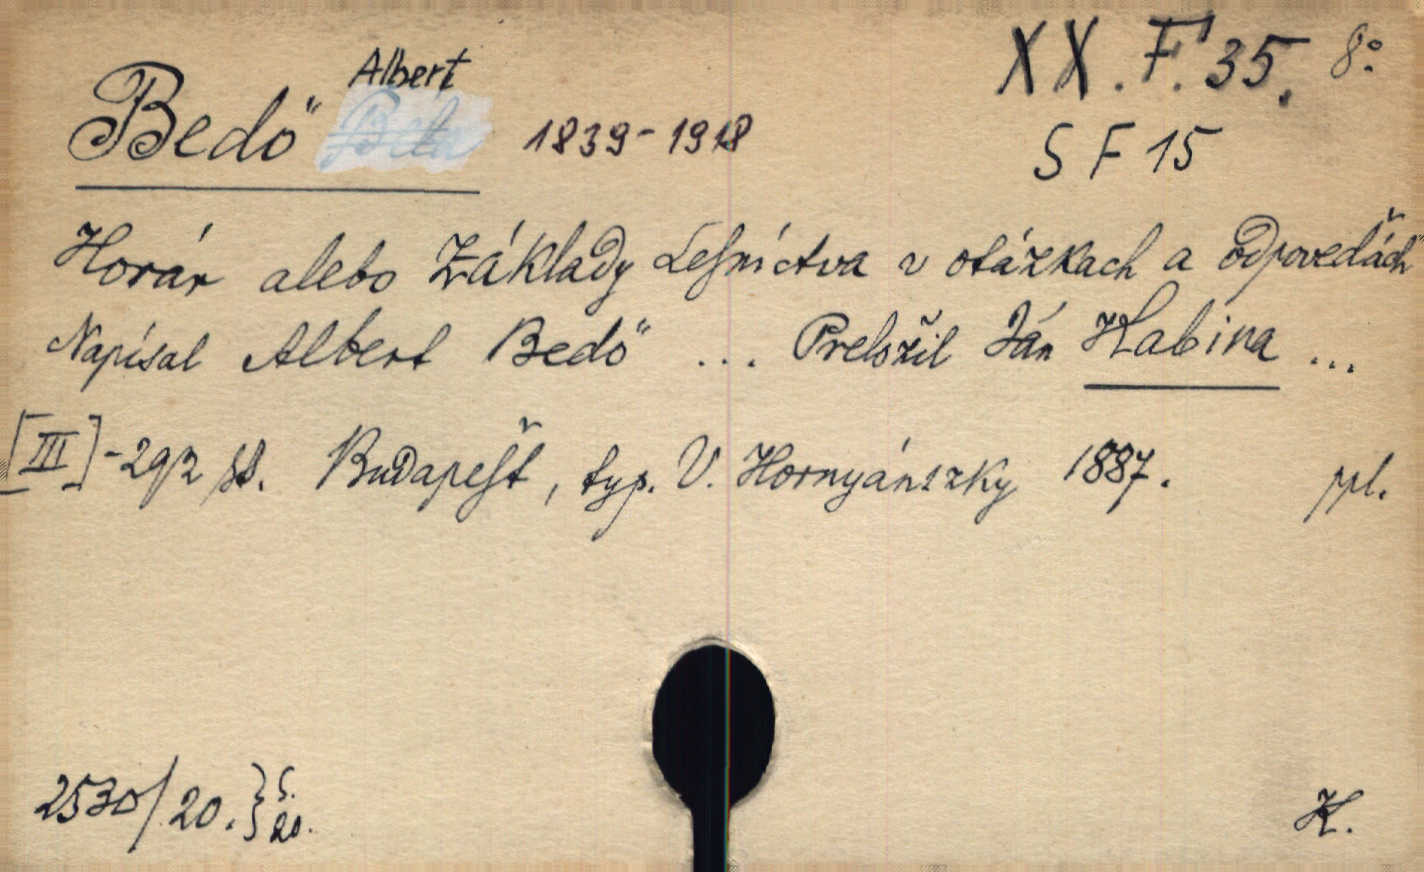 XX. F. 35. 8°
Bedő Albert 1839-1918
S F 15
Horár alebo Základy Lesníctva v otázkach a odpovedách
Napísal Albert Bedő ... Preložil Ján Habina ...
[III]-292 s. Budapešť, typ. V. Hornyánszky 1887. ppl.
2530/20.
20.
K.